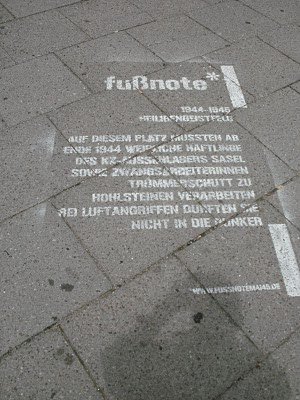 fußnote*
1944-1945
HEILIGENGEISTFELD
AUF DIESEM PLATZ MUSSTEN AB
ENDE 1944 WEIBLICHE HÄFTLINGE
DES KZ-AUSSENLAGERS SASEL
SOWIE ZWANGSARBEITERINNEN
TRÜMMERSCHUTT ZU
HOHLSTEINEN VERARBEITEN
BEI LUFTANGRIFFEN DURFTEN SIE
NICHT IN DIE BUNKER
WWW.FUSSNOTEMAI45.DE